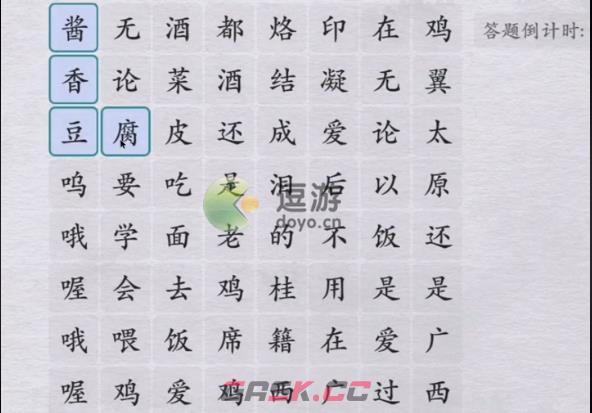 酱无酒都烙印在鸡
答题倒计时:
香论菜酒结凝无翼
豆腐皮还成爱论太
呜要吃是泪后以原
逗游
doyo.cn
哦学面老的不饭还
喔会去鸡桂用是是
哦喂饭席籍在爱广
喔鸡爱鸡西广过西
GASK.CC